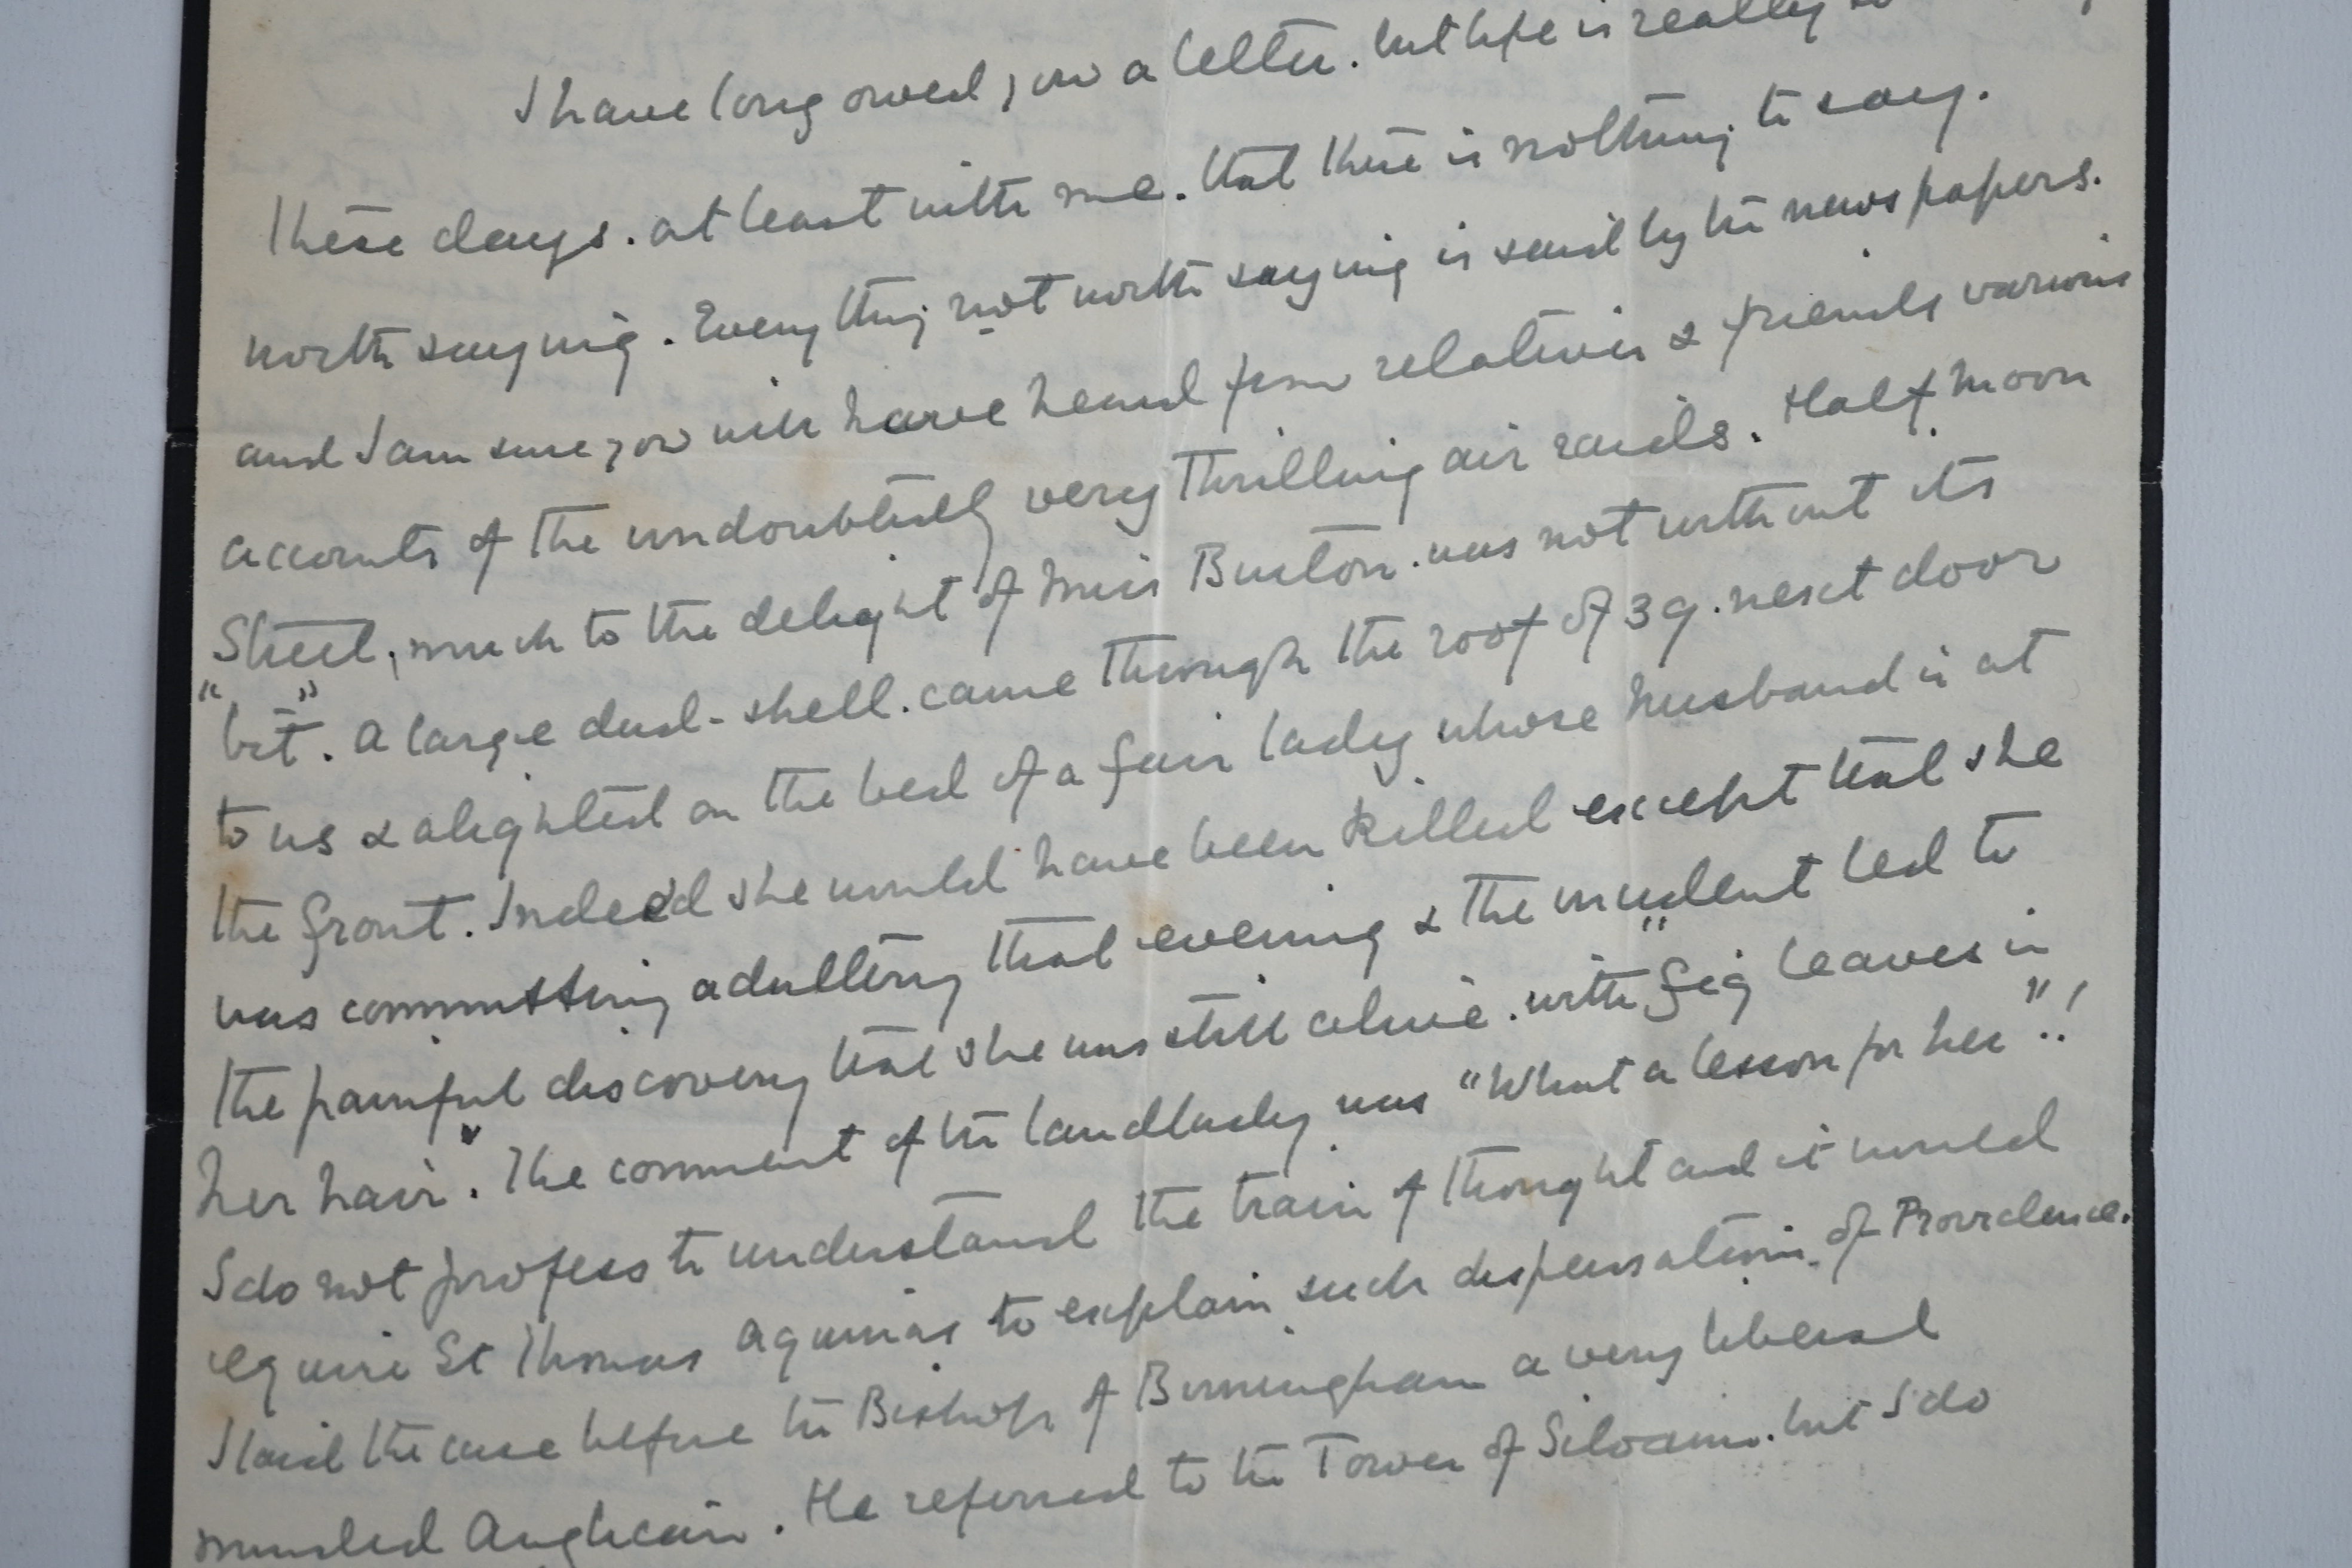 I have long owed you a letter. but life is really so
these days. at least with me. that there is nothing to say.
worth saying. Everything not worth saying is said by the newspapers.
and I am sure you will have heard from relatives & friends various
accounts of the undoubtedly very thrilling air raids. Half Moon
Street, much to the delight of Miss Burton. was not without its
"bit". A large dud-shell. came through the roof of 39. next door
to us & alighted on the bed of a fair lady whose husband is at
the front. Indeed she would have been killed except that she
was committing adultery that evening & the incident led to
the painful discovery that she was still alive. with "fig leaves in
her hair". The comment of the landlady was "What a lesson for her"!!
I do not profess to understand the train of thought and it would
require St Thomas Aquinas to explain such dispensations of Providence.
I laid the case before the Bishop of Birmingham a very liberal
minded Anglican. He referred to the Tower of Siloam. but I do